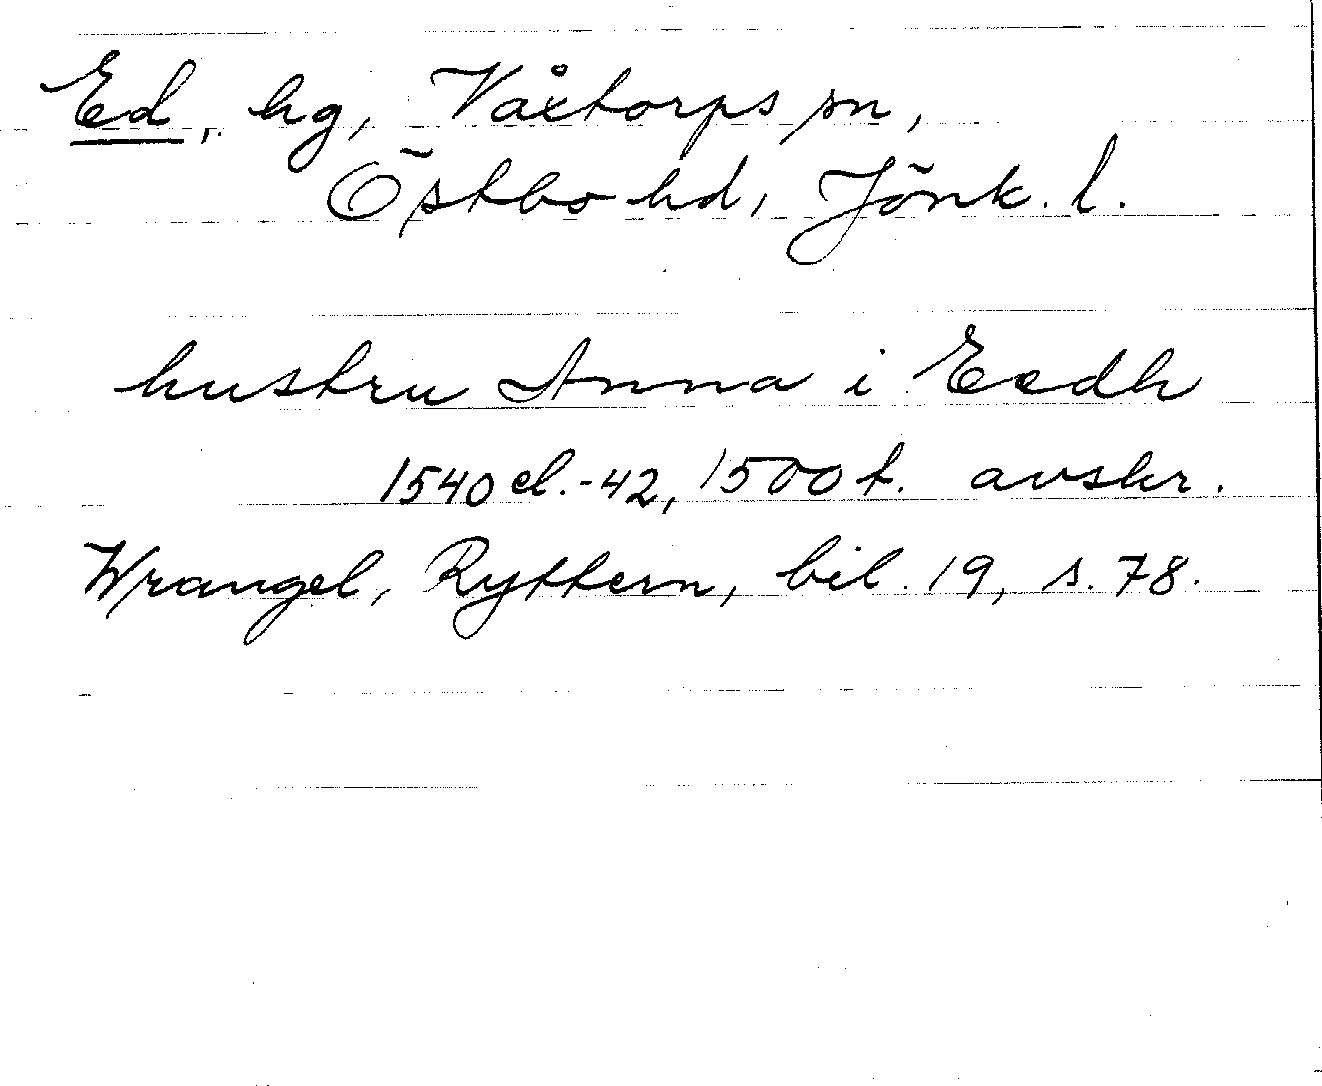 Ed, hg, Våxtorps sn,
Östbo hd, Jönk. l.
hustru Anna i Eedh
1540 el. -42, 1500 t. avskr.
Wrangel, Ryttern, bil. 19, s. 78.